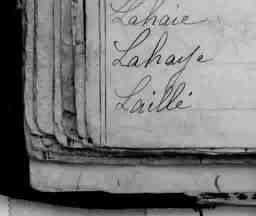 Lahaie
Lahaye
Laillé